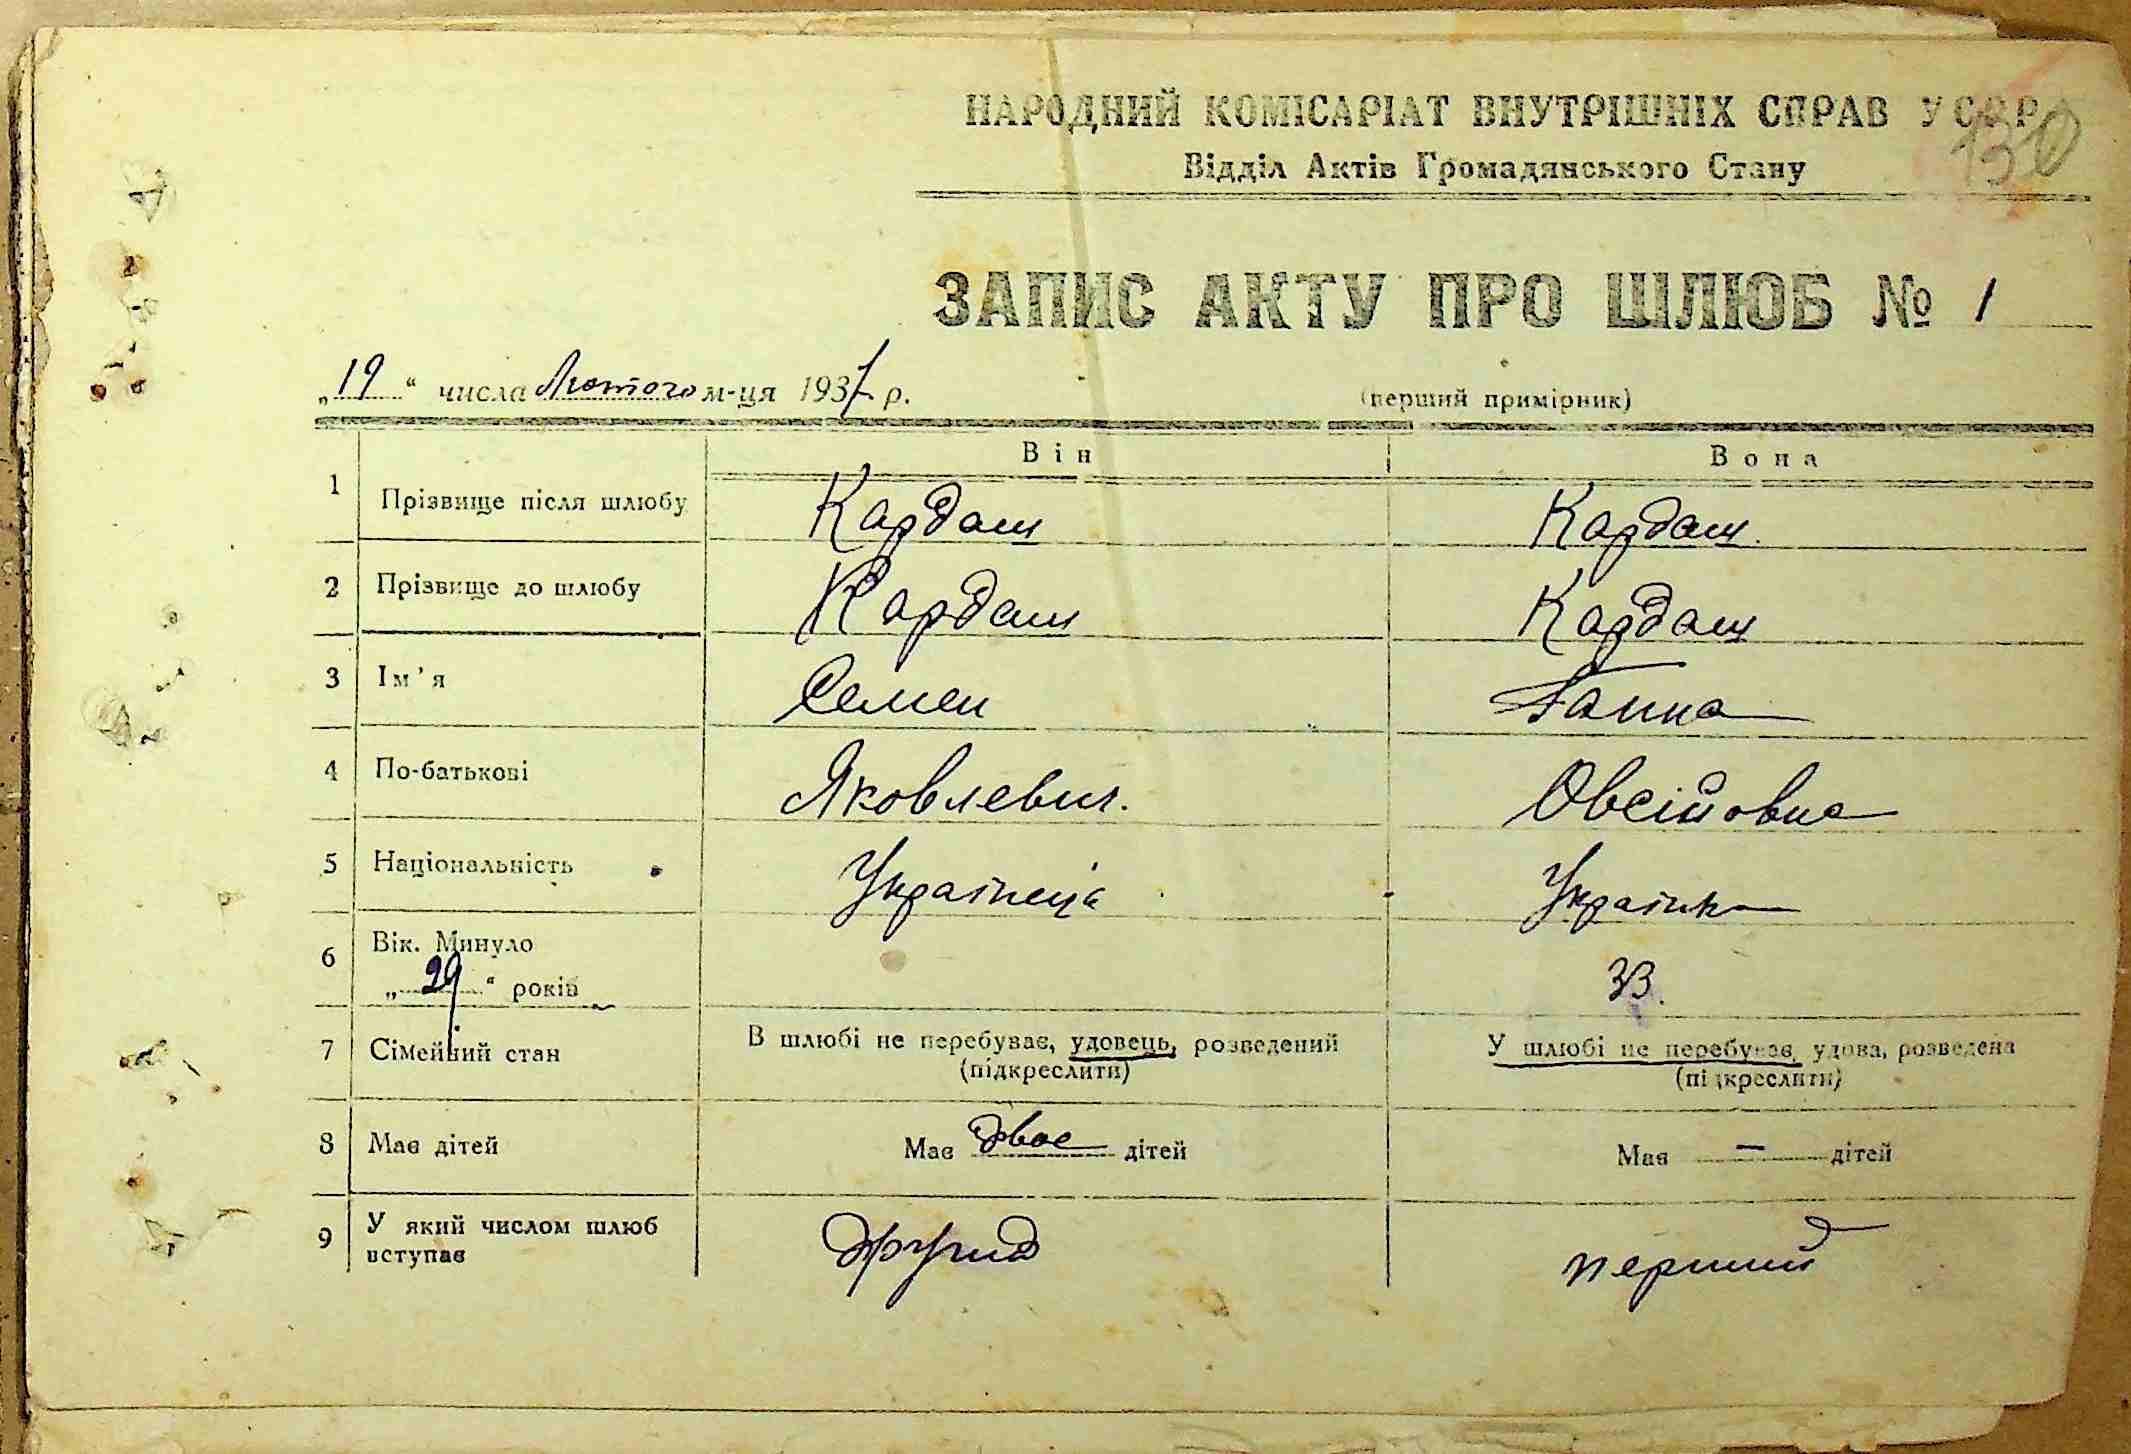 НАРОДНИЙ КОМІСАРІАТ ВНУТРІШНІХ СПРАВ УСРР
130
Відділ Актів Громадянського Стану
ЗАПИС АКТУ ПРО ШЛЮБ № 1
„19“ числа Лютого м-ця 1937 р.
(перший примірник)
Він Вона
1 Прізвище після шлюбу Кардаш Кардаш.
2 Прізвище до шлюбу Кардаш Кардаш
3 Ім'я Семен Ганна
4 По-батькові Яковлевич. Овсійовна
5 Національність Українець Українка
6 Вік. Минуло
„29“ років 33.
7 Сімейний стан В шлюбі не перебуває, удовець, розведений У шлюбі не перебуває, удова, розведена
(підкреслити) (підкреслити)
8 Має дітей Має двое дітей Має — дітей
9 У який числом шлюб
вступає другий перший